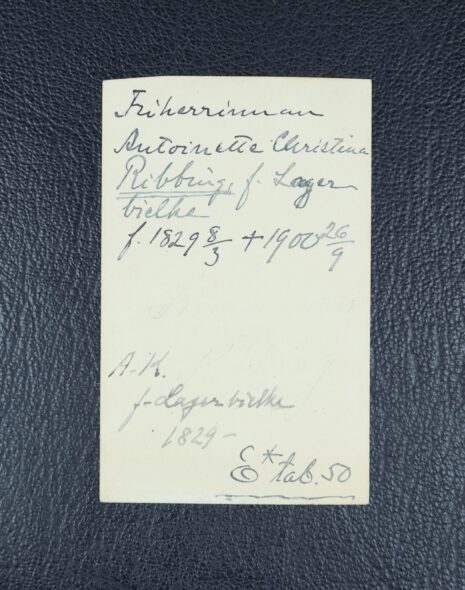 Friherrinnan
Antoinette Christina
Ribbing, f. Lager
bielke
f. 1829 8/3 + 1900 26/9
A-K.
f. Lagerbielke
1829-
E* tab. 50